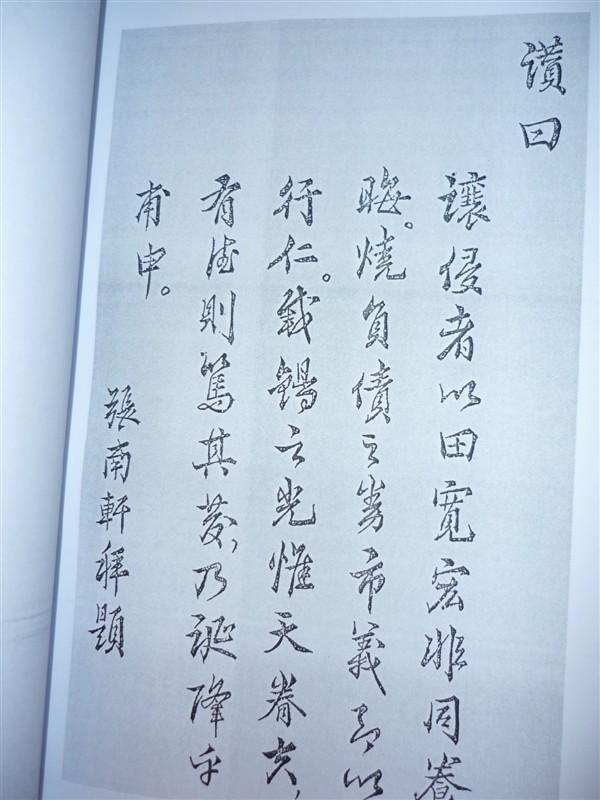 讚曰
讓侵者以田寬宏非同養
晦。燒負債之券市義即以
行仁。載錫之光惟天眷
有德則篤其慶，乃誕降乎
甫申。
張南軒拜題